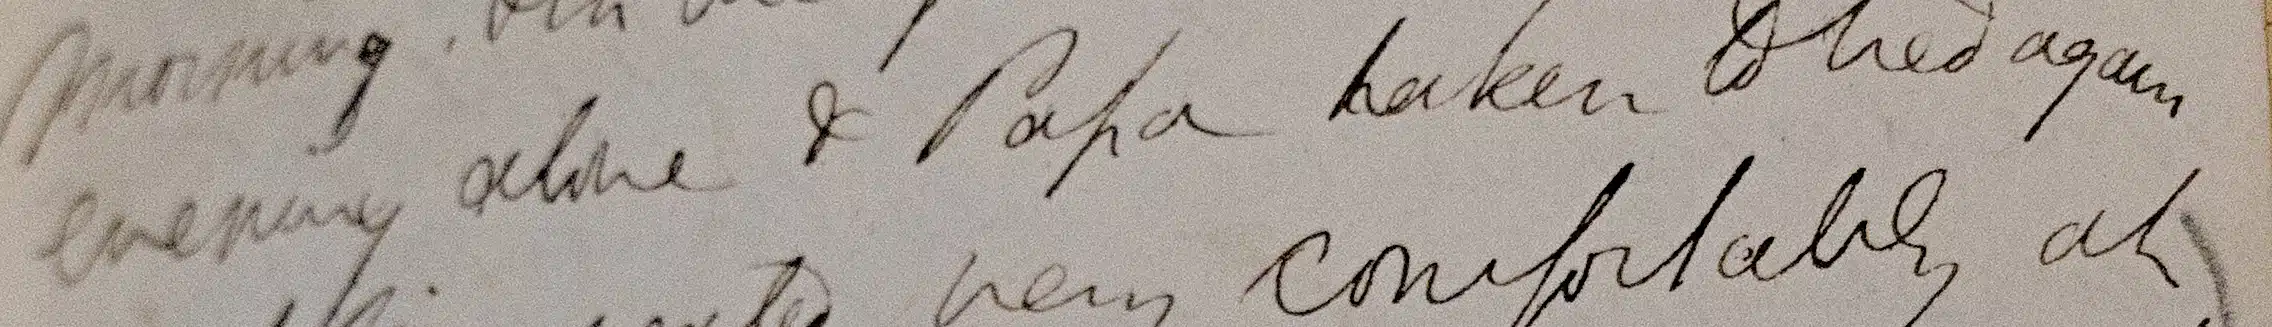 morning.
evening alone & Papa taken to bed again
very comfortably at